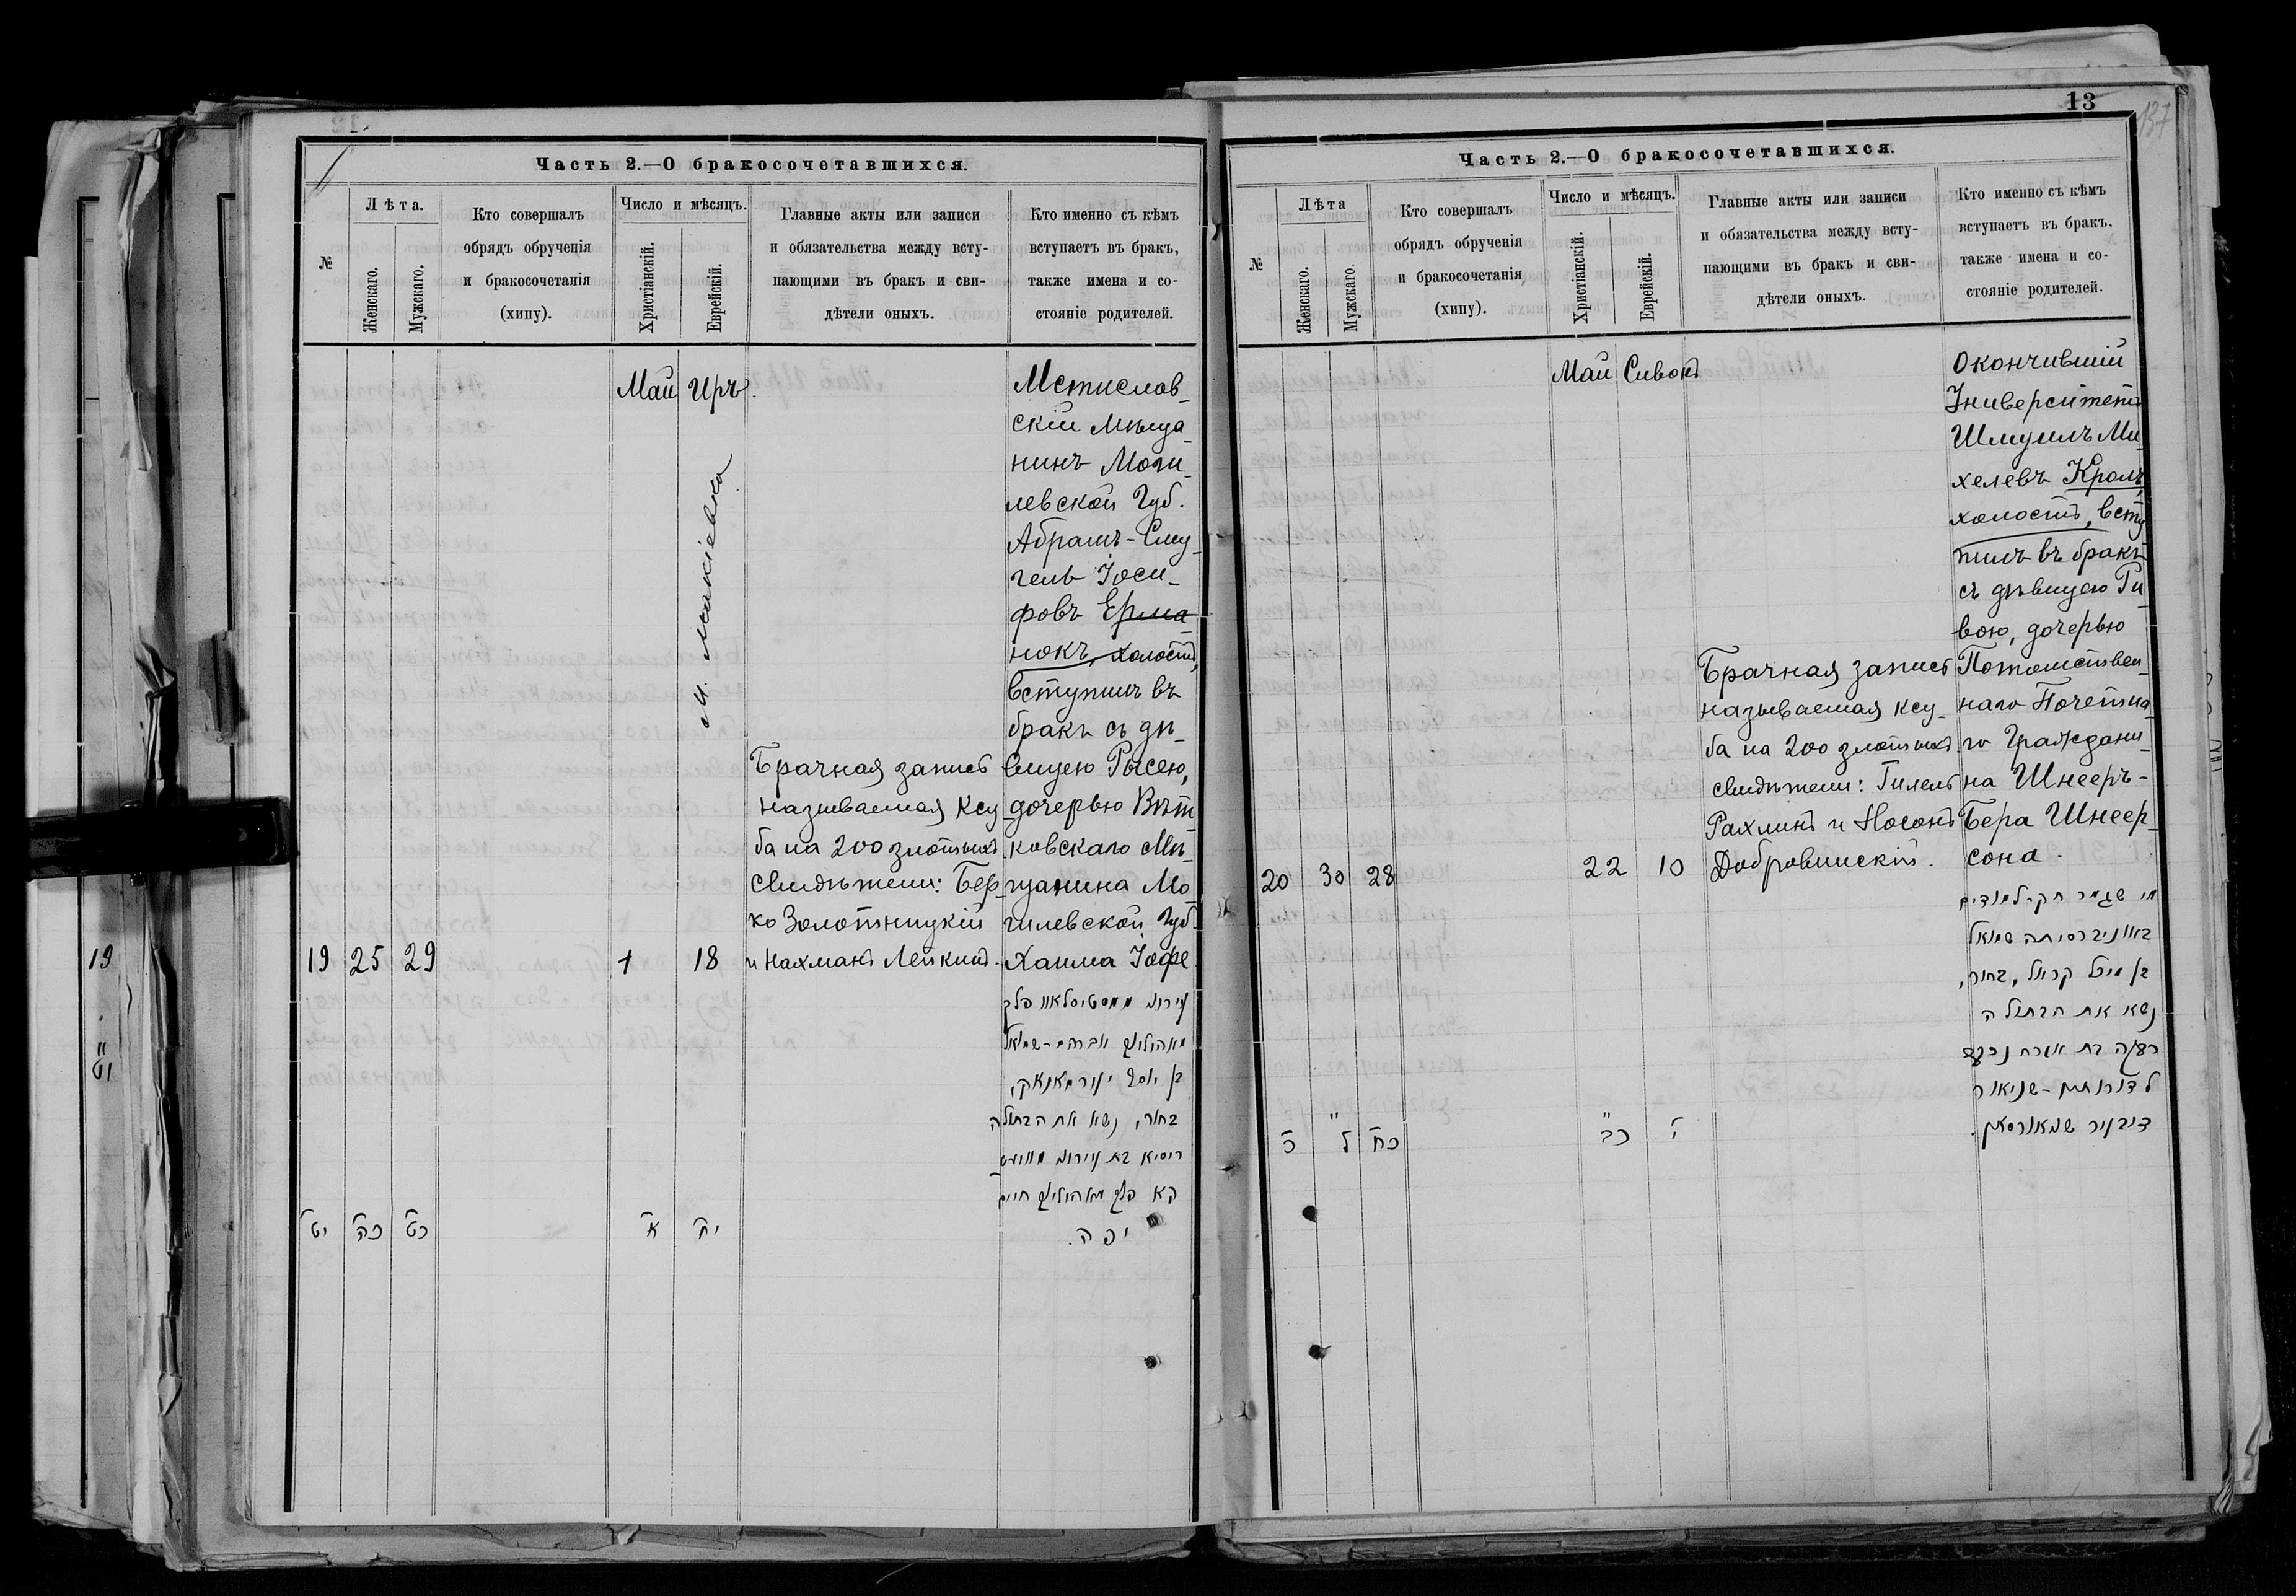 Часть 2.—О бракосочетавшихся.
№
Лѣта.
Женскаго.
Мужскаго.
Кто совершалъ
обрядъ обрученія
и бракосочетанія
(хипу).
Число и мѣсяцъ.
Христіанскій.
Еврейскій.
Главные акты или записи
и обязательства между всту-
пающими въ бракъ и сви-
дѣтели оныхъ.
Кто именно съ кѣмъ
вступаетъ въ бракъ,
также имена и со-
стояніе родителей.
Май Иръ
19 25 29
1 18
Брачная запись
называемая Ксу
ба на 200 злотыхъ
Свидѣтели: Бер-
ко Золотницкій
и Нахманъ Лейкинъ.
Мстислав-
скій мѣща-
нинъ Моги-
левской Губ.
Абрамъ-Сму-
гель Іоси-
фовъ Ерма-
нокъ, холостъ,
вступилъ въ
бракъ съ дѣ-
вицею Рысею,
дочерью Вѣт
ковскаго Мѣ-
щанина Мо
гилевской Губ.
Хаима Іофе
בחור, נשא את הבתולה
יפה.
יט כה כט
א יח
19
יט
13
137
Часть 2.—О бракосочетавшихся.
№
Лѣта
Женскаго.
Мужскаго.
Кто совершалъ
обрядъ обрученія
и бракосочетанія
(хипу).
Число и мѣсяцъ.
Христіанскій.
Еврейскій.
Главные акты или записи
и обязательства между всту-
пающими въ бракъ и сви-
дѣтели оныхъ.
Кто именно съ кѣмъ
вступаетъ въ бракъ,
также имена и со-
стояніе родителей.
Май Сивонъ
20 30 28
22 10
Брачная запись
называемая ксу-
ба на 200 злотыхъ
свидѣтели: Гилель
Рахлинъ и Носонъ
Добровинскій.
Окончившій
Университетъ
Шмуилъ Ми
хелевъ Кролъ,
холостъ, всту
пилъ въ бракъ
съ дѣвицею Ри
вою, дочерью
Потомствен-
наго Почетна-
го Граждани-
на Шнееръ-
Бера Шнеер-
сона.
מי שגמר חק־למודים
באוניברסיתה שמואל
בן מיכל קרול, בחור,
נשא את הבתולה
כ ל כח
כב י